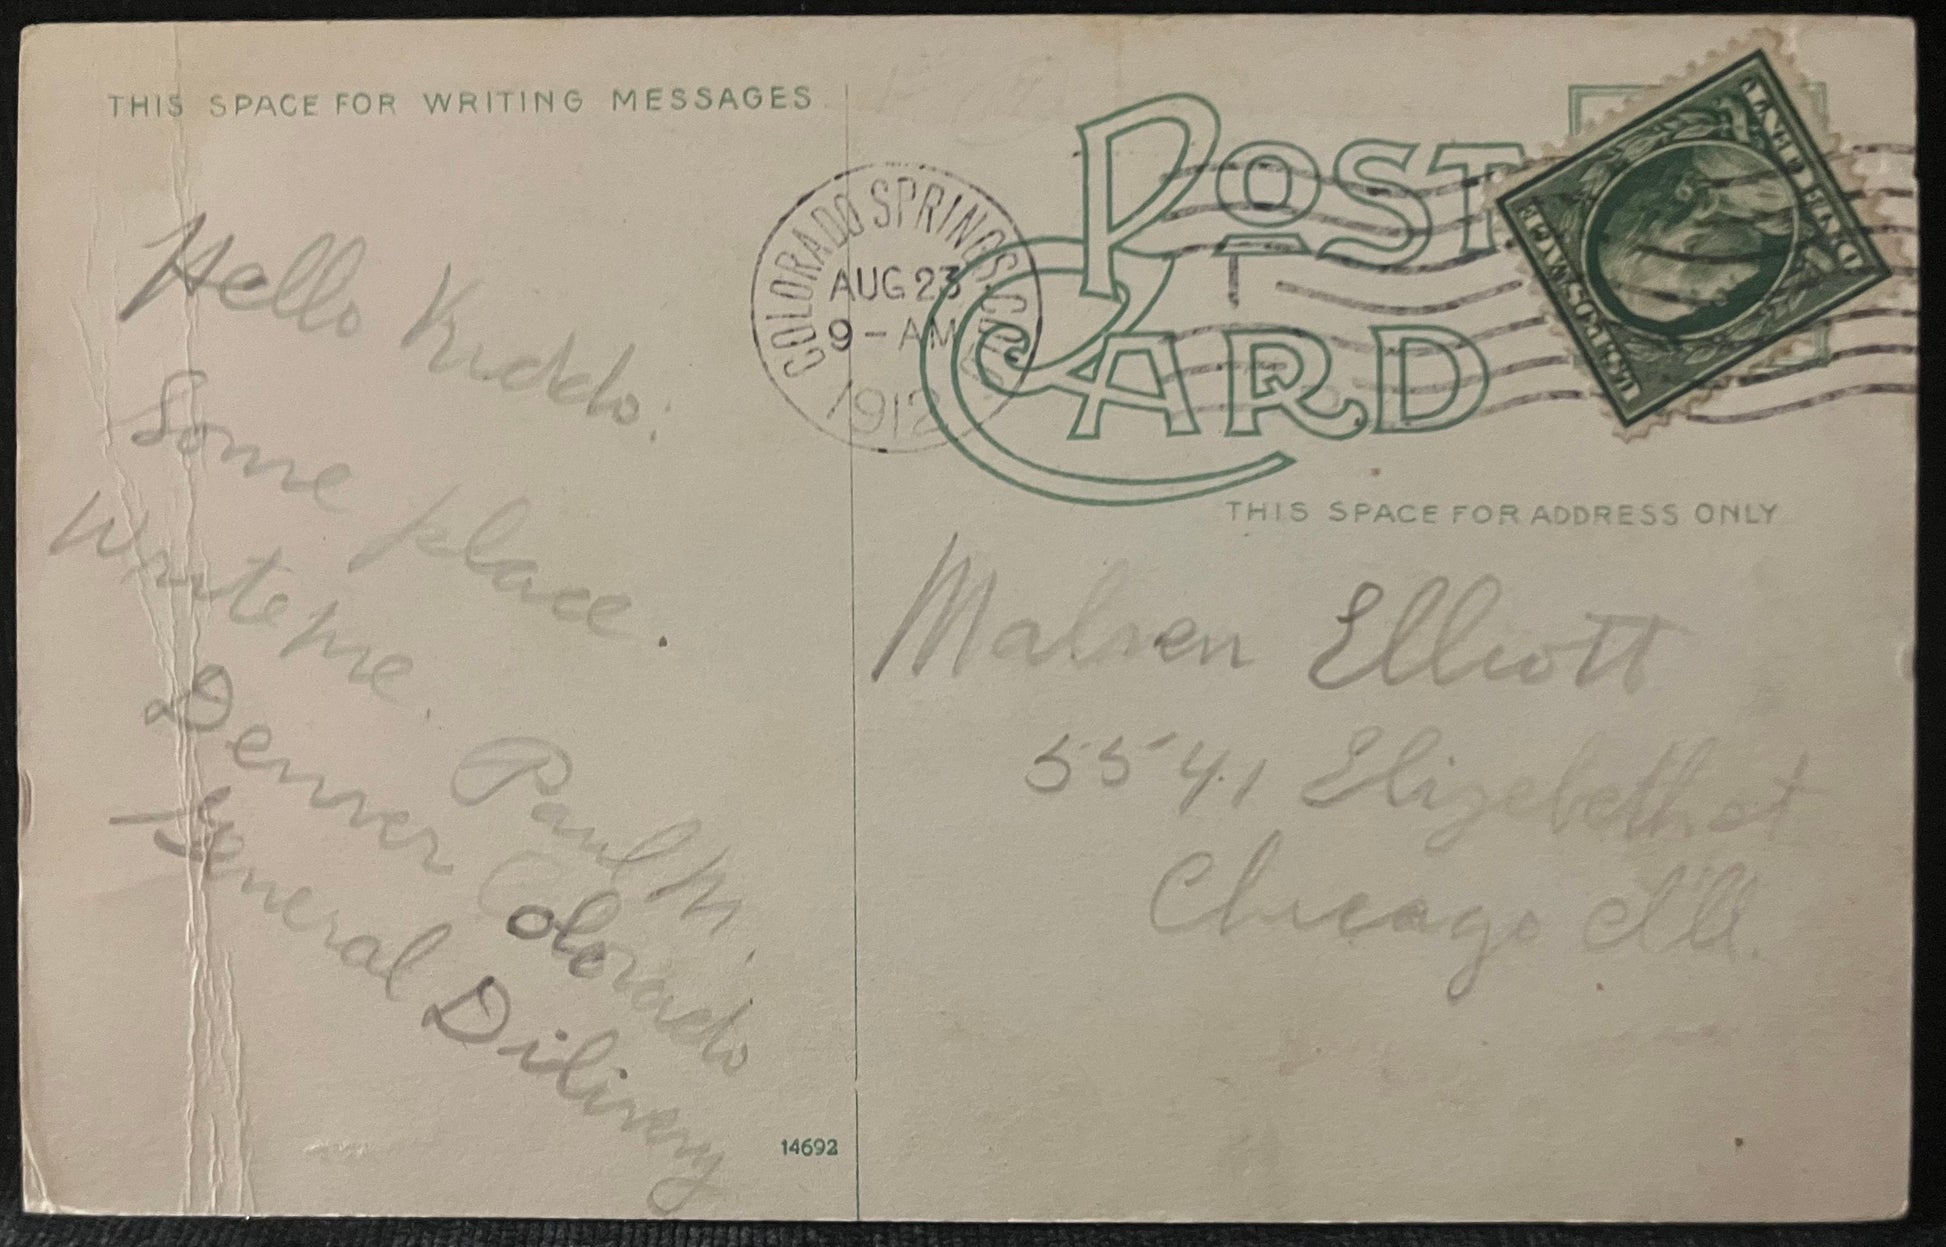 THIS SPACE FOR WRITING MESSAGES
Hello Kiddo:
Some place.
Write me.
Paul M.
Denver Colorado
General Dilivery
14692
COLORADO SPRINGS, COLO.
AUG 23
9 - AM
1912
POST
CARD
THIS SPACE FOR ADDRESS ONLY
Elliott
5541 Elizabeth st
Chicago Ill.